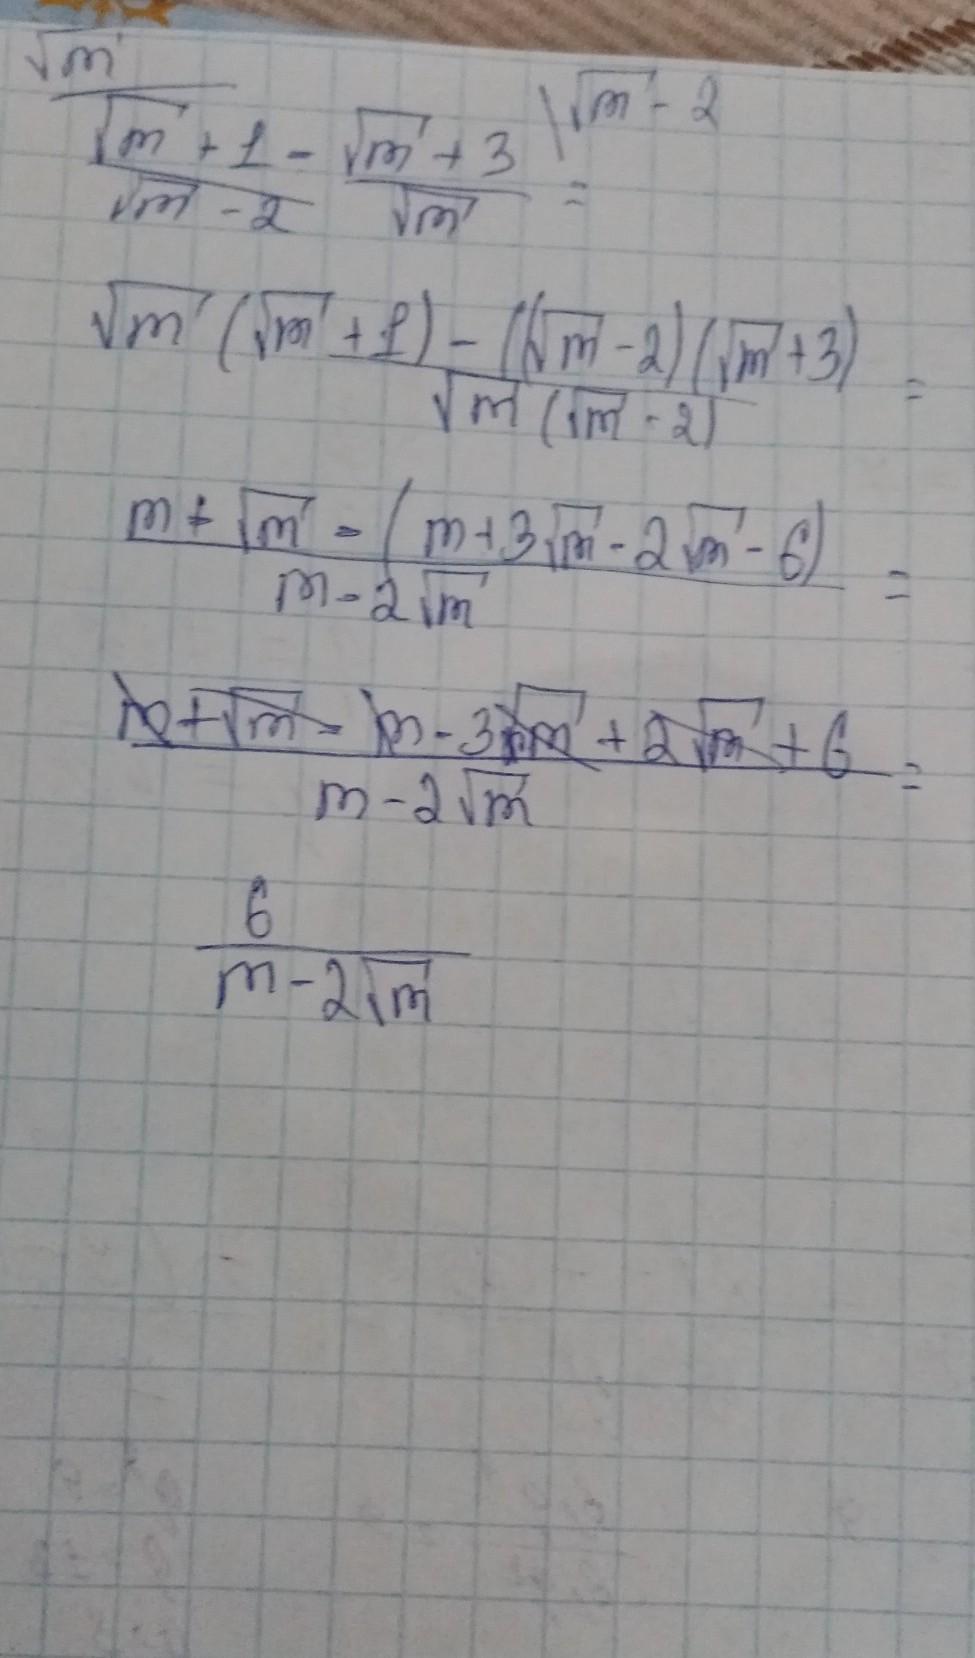 √m
√m + 1 - √m + 3 \ √m - 2
√m - 2 √m =
√m (√m + 1) - ((√m - 2)(√m + 3)
√m (√m - 2) =
m + √m - (m + 3√m - 2√m - 6)
m - 2√m =
m + √m - m - 3√m + 2√m + 6
m - 2√m =
6
m - 2√m